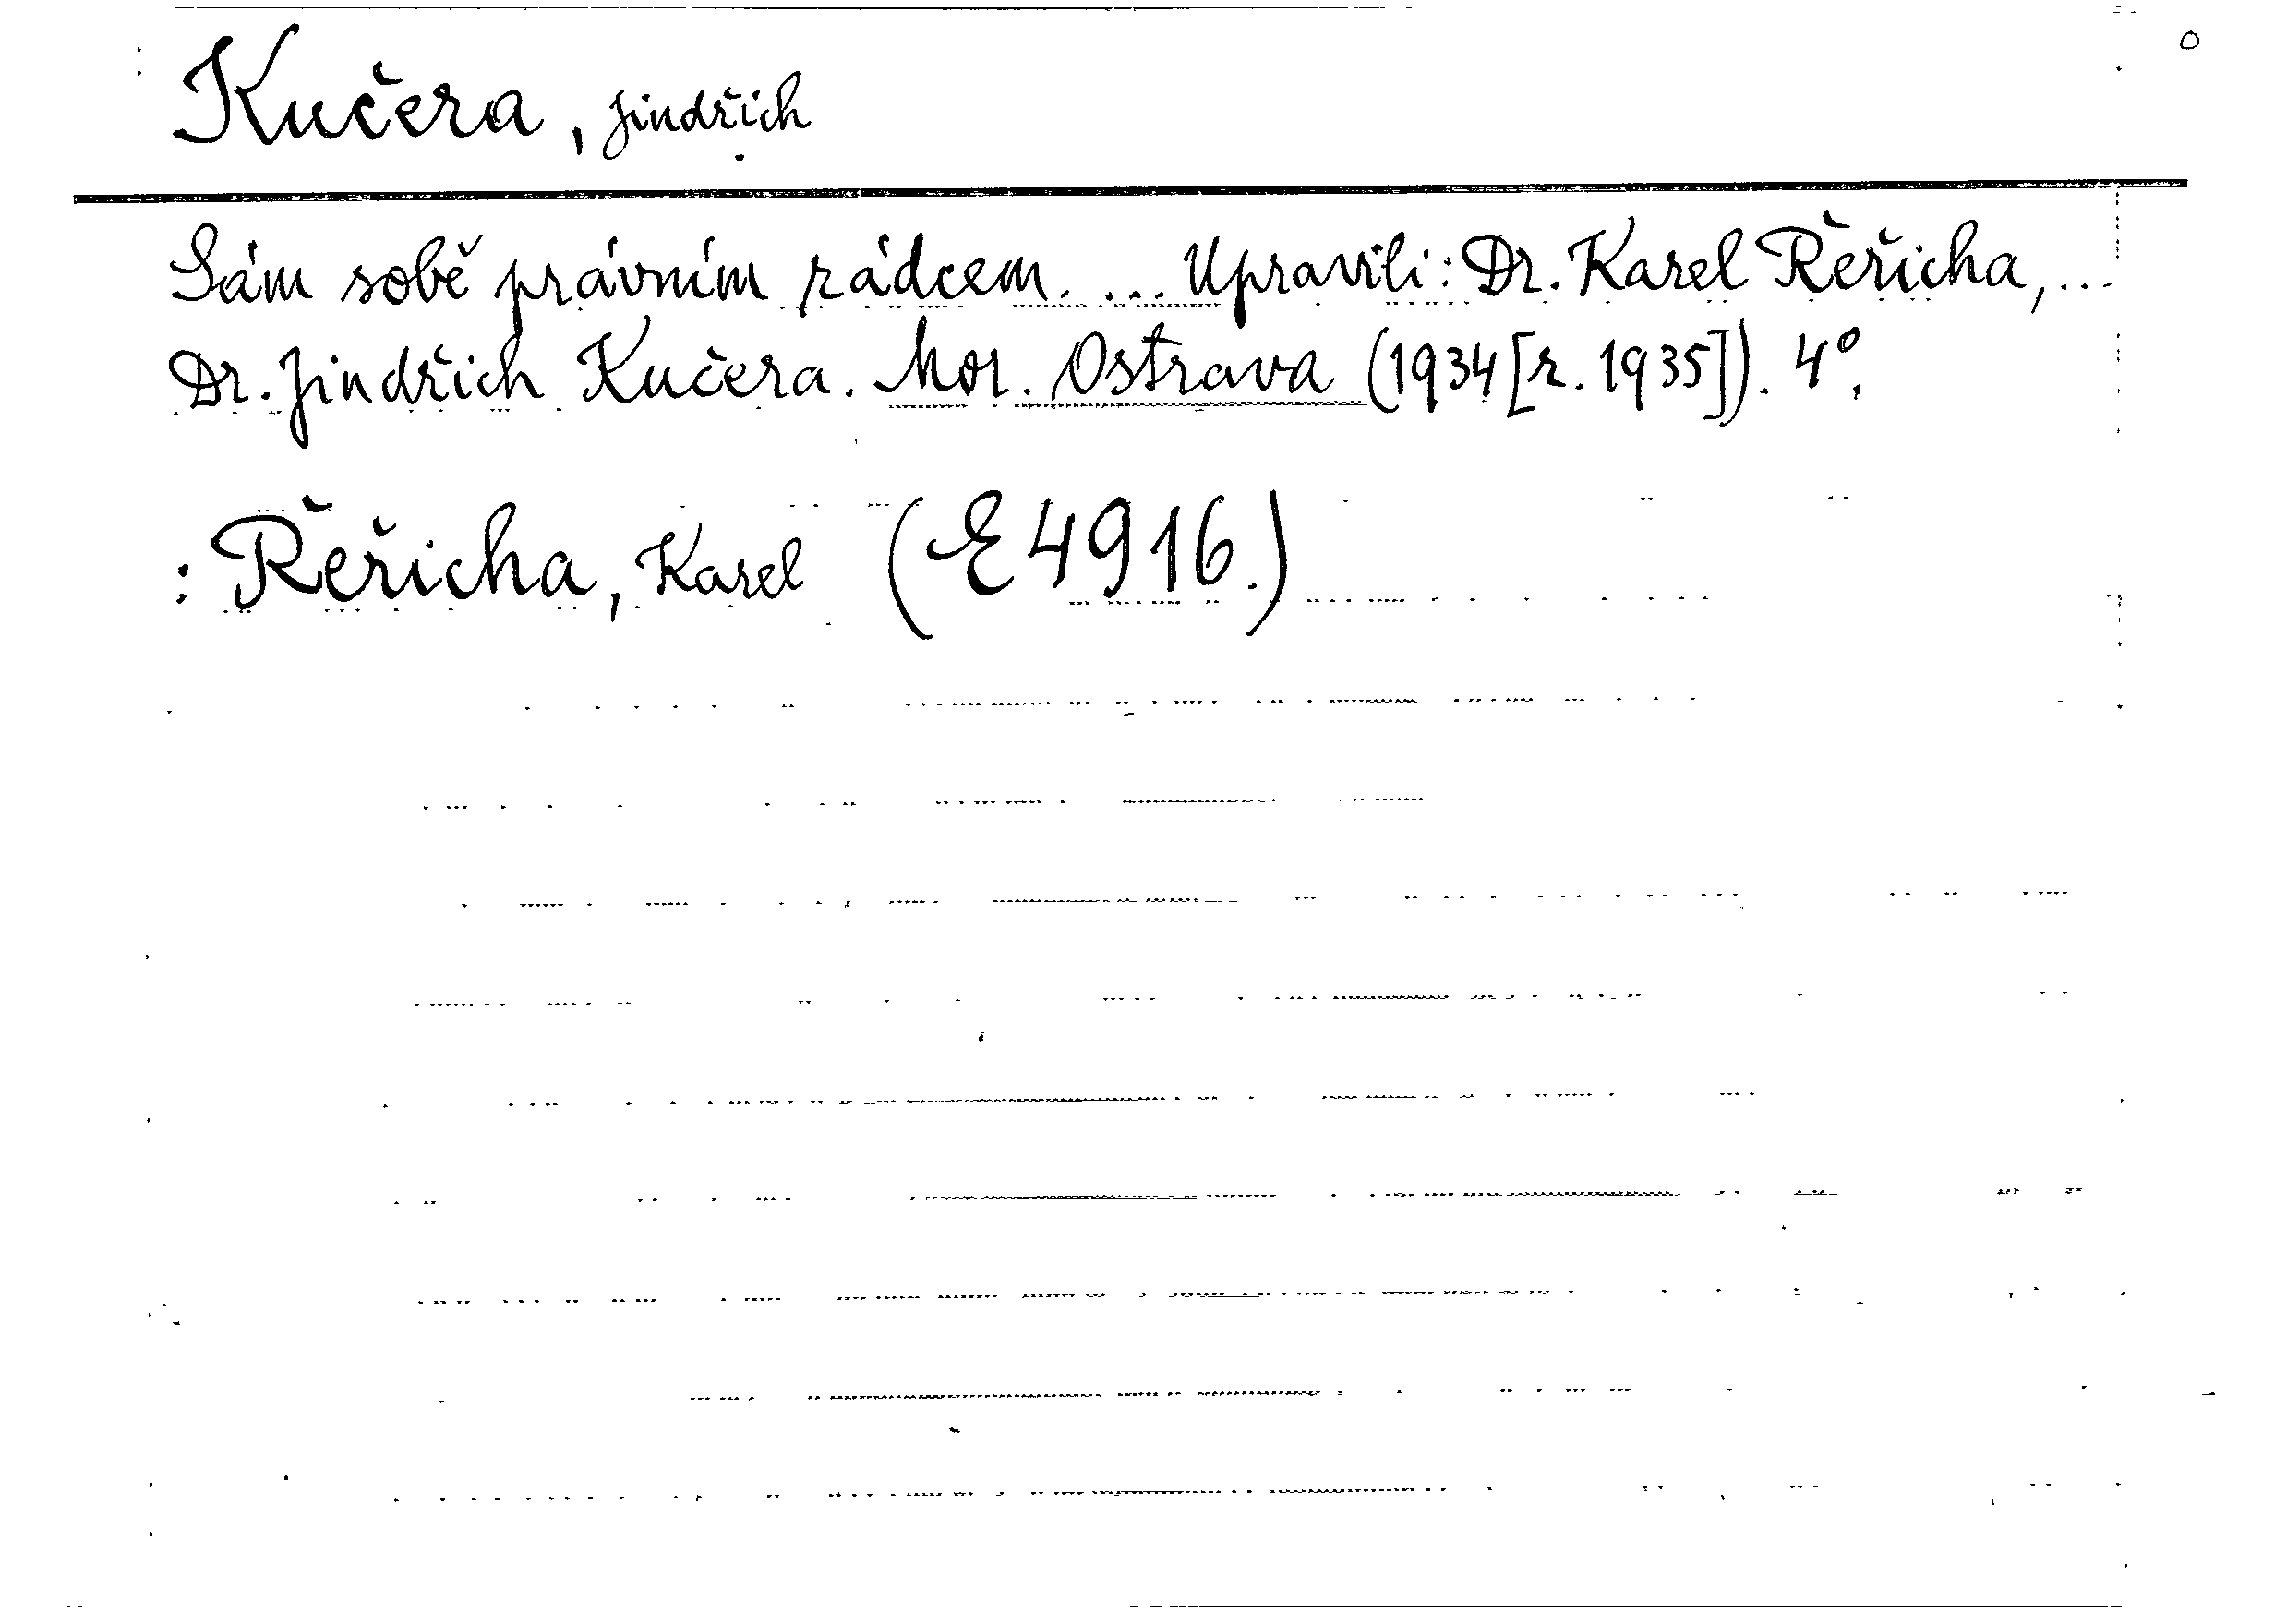 Kučera, Jindřich
Sám sobě právním rádcem. ... Upravili: Dr. Karel Řeřicha, ...
Dr. Jindřich Kučera. Mor. Ostrava (1934 [r. 1935]). 4°.
: Řeřicha, Karel (E 4916.)